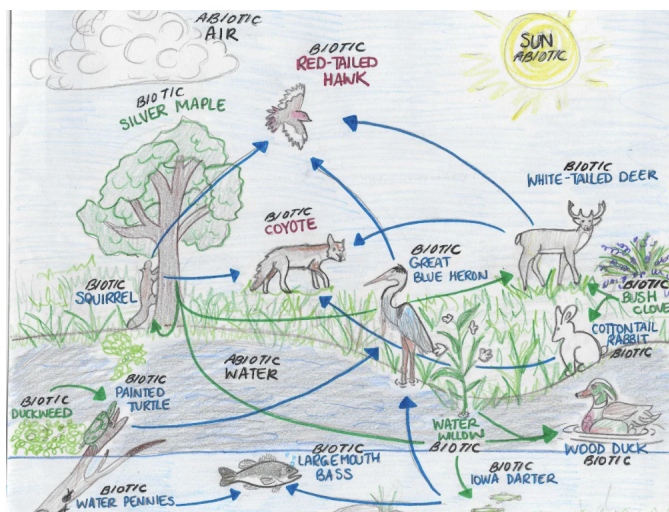 ABIOTIC
AIR
BIOTIC
RED-TAILED
HAWK
SUN
ABIOTIC
BIOTIC
SILVER MAPLE
BIOTIC
WHITE-TAILED DEER
BIOTIC
COYOTE
BIOTIC
GREAT
BLUE HERON
BIOTIC
SQUIRREL
BIOTIC
BUSH
CLOVE
COTTONTAIL
RABBIT
BIOTIC
ABIOTIC
WATER
BIOTIC
PAINTED
TURTLE
BIOTIC
DUCKWEED
WATER
WILLOW
BIOTIC
WOOD DUCK
BIOTIC
BIOTIC
LARGEMOUTH
BASS
BIOTIC
IOWA DARTER
BIOTIC
WATER PENNIES